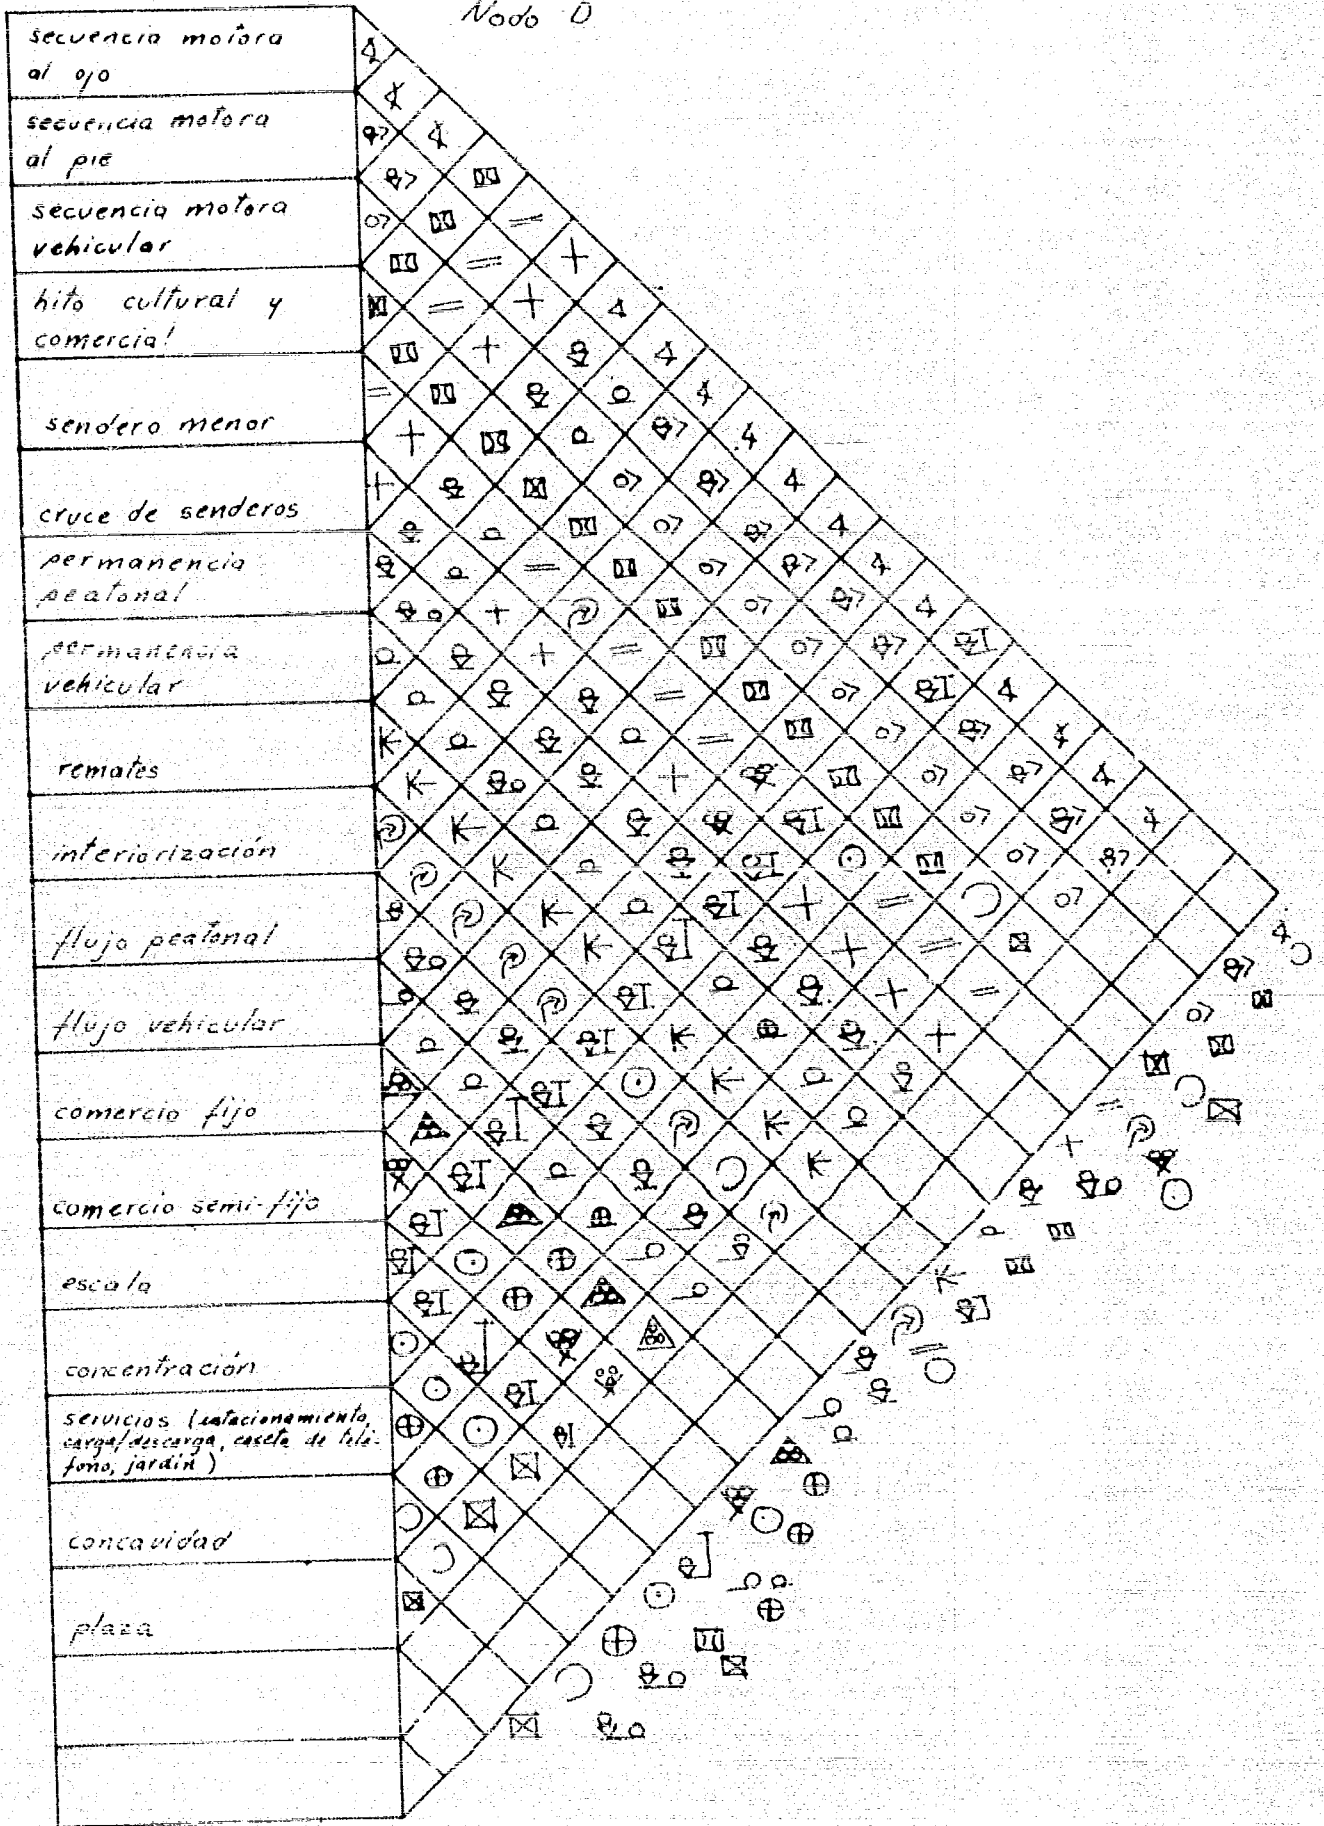 Nodo D
secuencia motora
al ojo
secuencia motora
al pie
secuencia motora
vehicular
hito cultural y
comercial
sendero menor
cruce de senderos
permanencia
peatonal
permanencia
vehicular
remates
interiorización
flujo peatonal
flujo vehicular
comercio fijo
comercio semi-fijo
escala
concentración
servicios (estacionamiento,
carga/descarga, caseta de telé-
fono, jardín)
concavidad
plaza